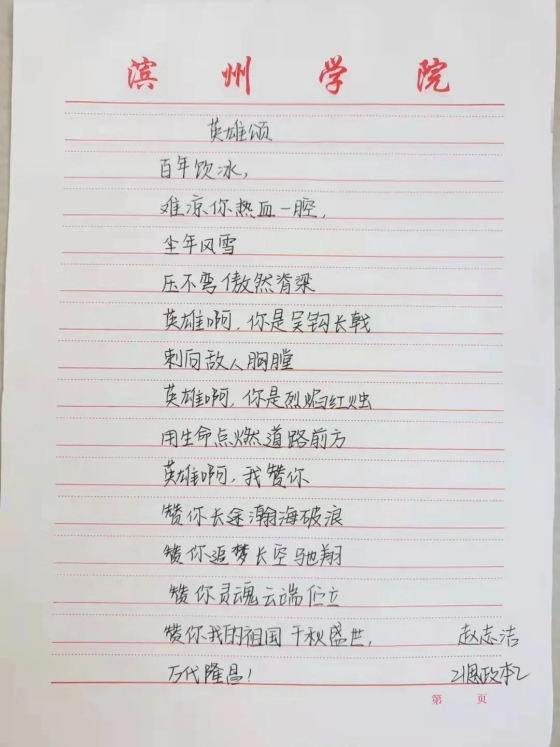 滨州学院
英雄颂
百年饮冰，
难凉你热血一腔，
尘年风雪
压不弯傲然脊梁
英雄啊，你是吴钩长戟
刺向敌人胸膛
英雄啊，你是烈焰红烛
用生命点燃道路前方
英雄啊，我赞你
赞你长途瀚海破浪
赞你追梦长空驰翔
赞你灵魂云端伫立
赞你我的祖国千秋盛世，
万代隆昌！
赵志洁
21思政本2
第 页